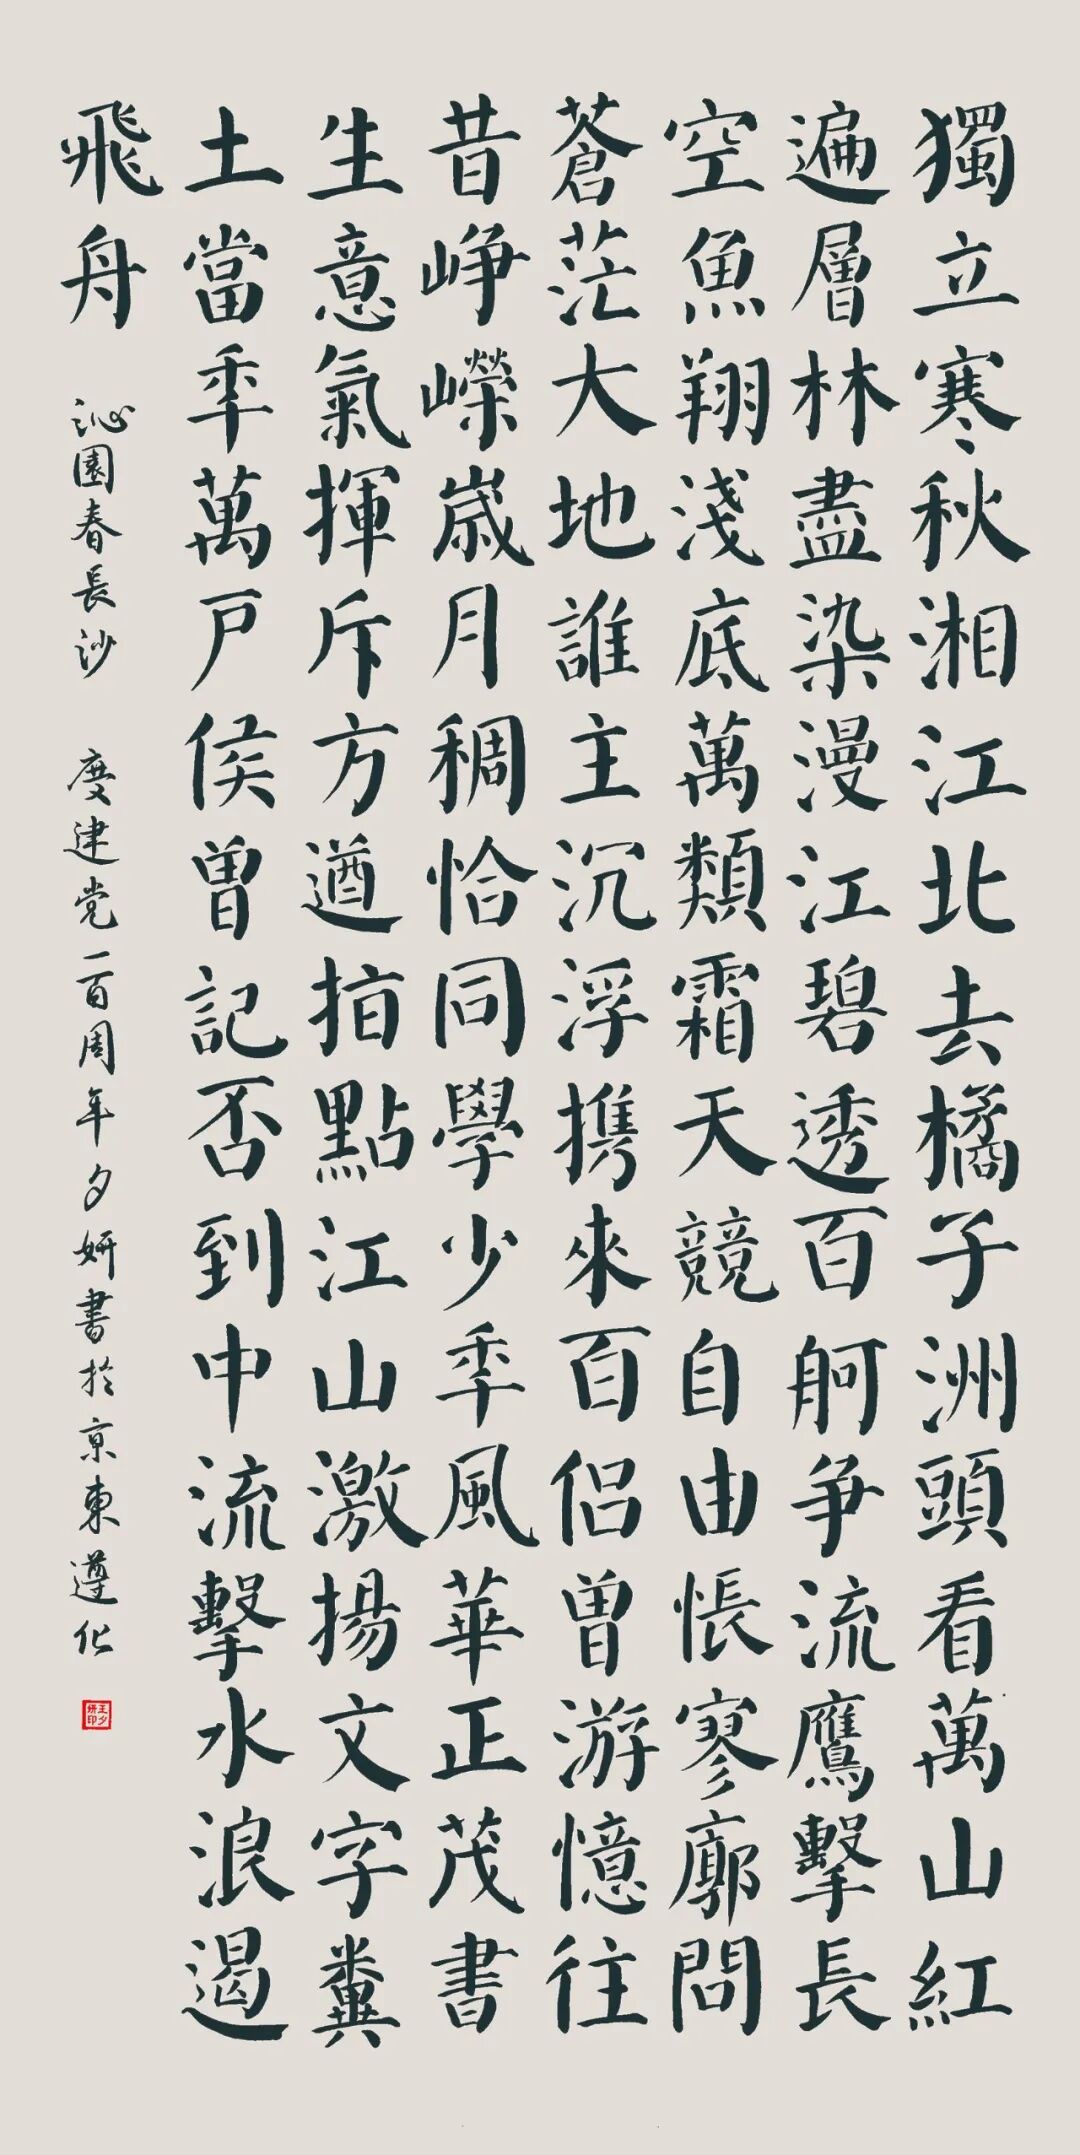 獨立寒秋湘江北去橘子洲頭看萬山紅
遍層林盡染漫江碧透百舸争流鷹擊長
空魚翔淺底萬類霜天競自由悵寥廓問
蒼茫大地誰主沉浮携來百侣曾游憶往
昔峥嶸嵗月稠恰同學少秊風華正茂書
生意氣揮斥方遒指點江山激揚文字糞
土當秊萬户侯曾記否到中流擊水浪遏
飛舟
沁園春長沙 度建党一百周年夕妍書於京東遵化
王夕妍印